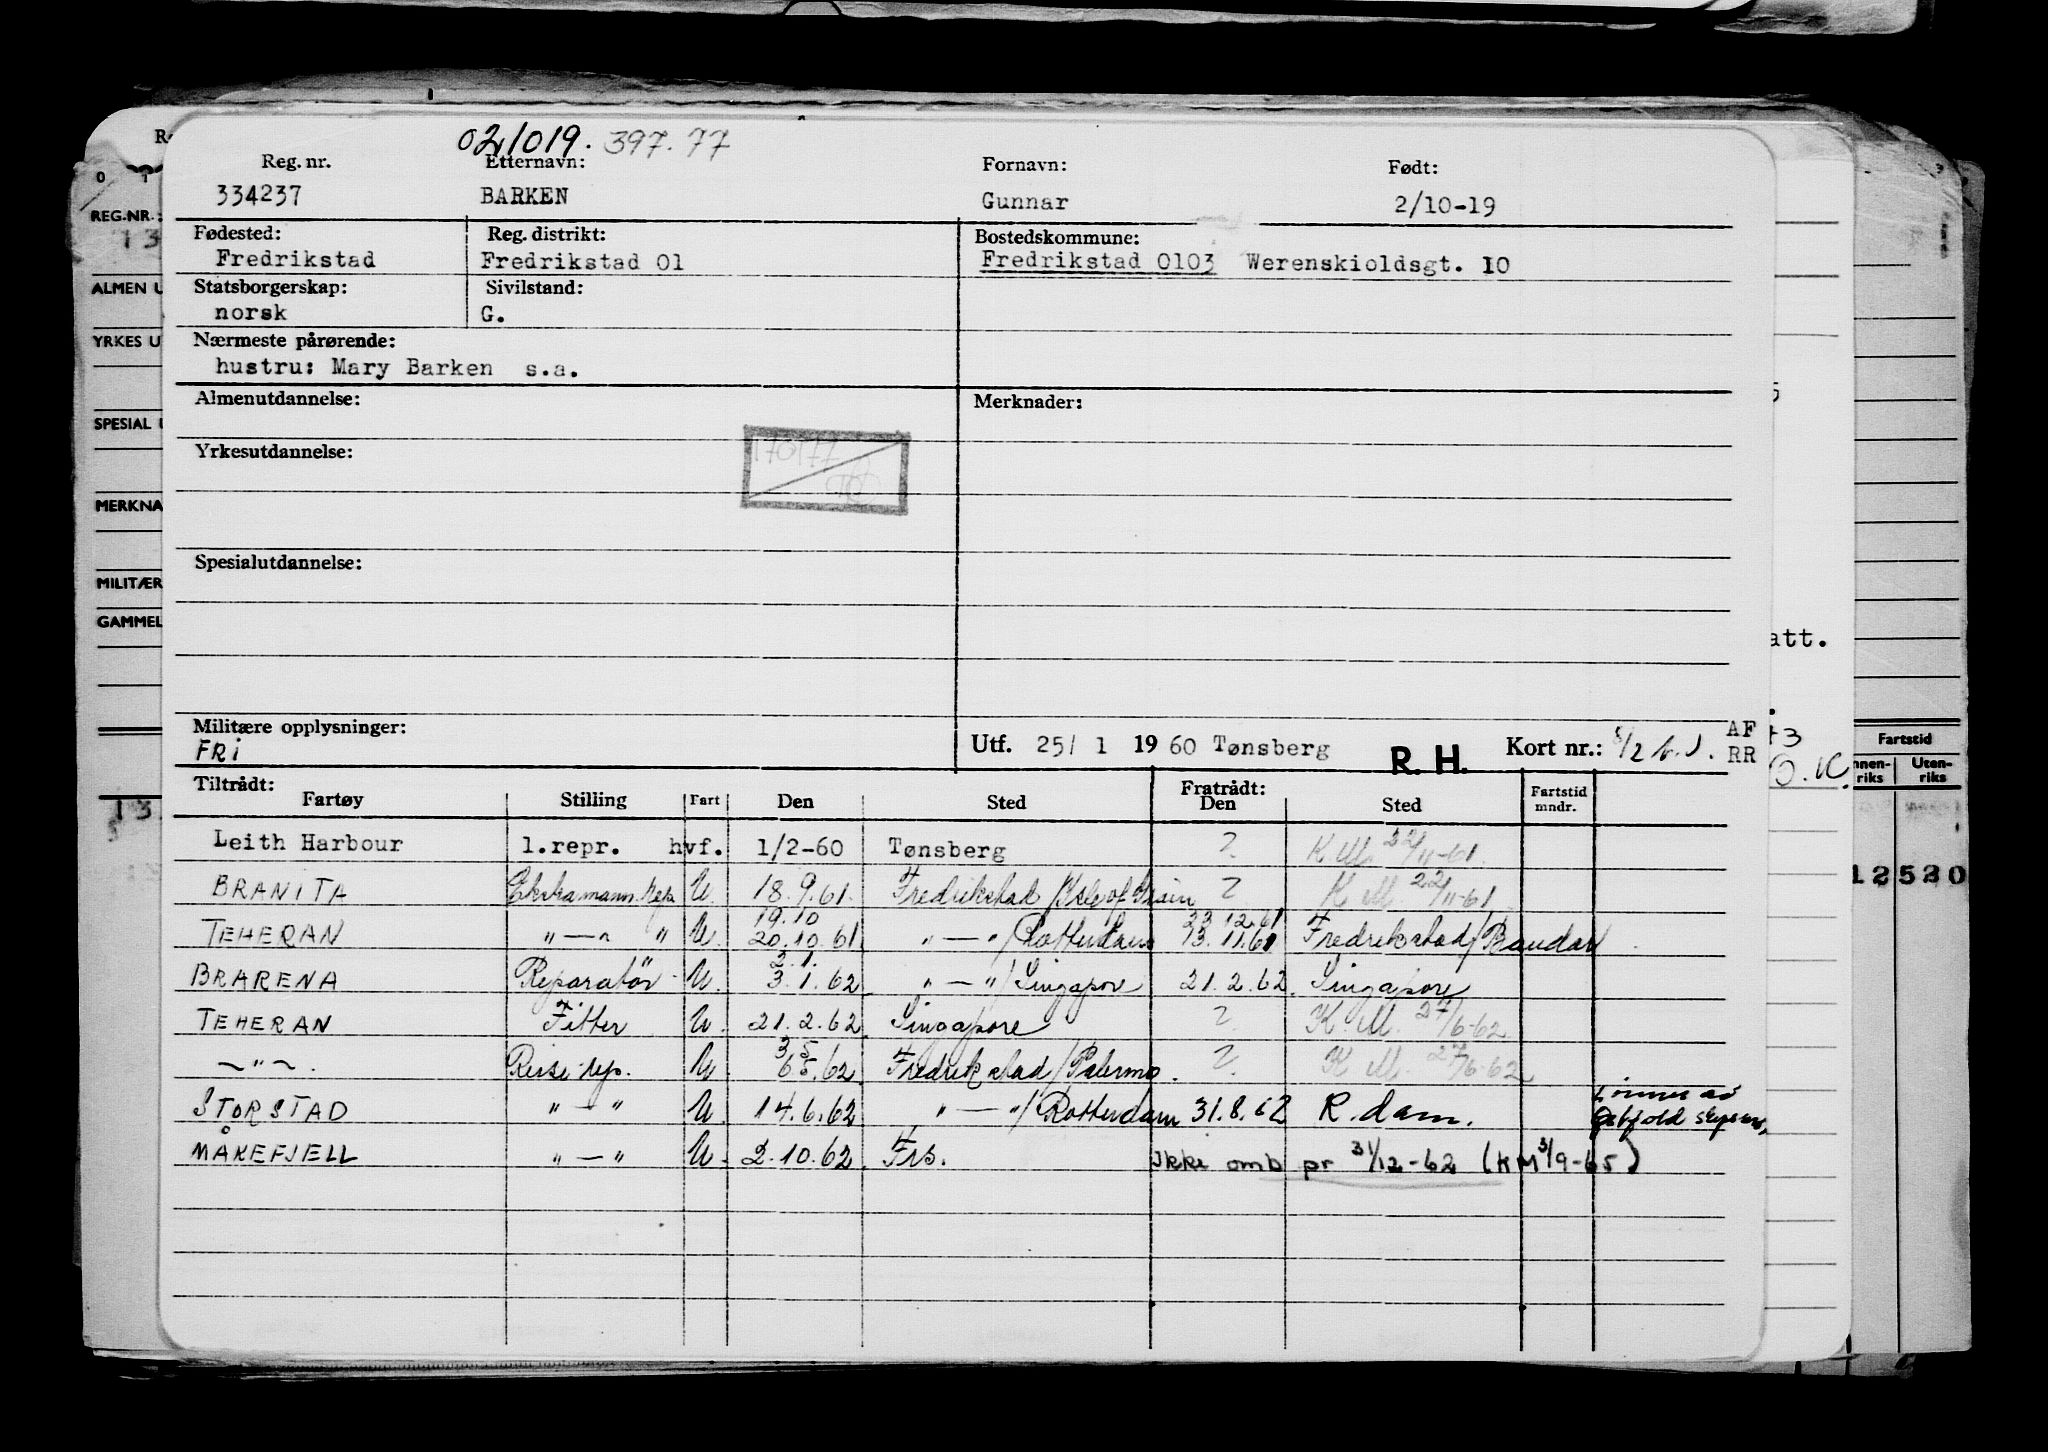 021019. 397.77
Reg. nr. Etternavn: Fornavn: Født:
334237 BARKEN Gunnar 2/10-19
Fødested: Reg. distrikt: Bostedskommune:
Fredrikstad Fredrikstad 01 Fredrikstad 0103 Werenskioldsgt. 10
Statsborgerskap: Sivilstand:
norsk G.
Nærmeste pårørende:
hustru: Mary Barken s.a.
Almenutdannelse: Merknader:
Yrkesutdannelse:
170177
Spesialutdannelse:
Militære opplysninger:
FRi
Utf. 25/ 1 19 60 Tønsberg R. H. Kort nr.: AF
RR
Tiltrådt: Fratrådt:
Fartøy Stilling Fart Den Sted Den Sted Fartstid mndr.
Leith Harbour 1.repr. hvf. 1/2-60 Tønsberg ? K M. 22/11-61
BRANITA Ekstramann. rep. U. 18.9.61. Fredrikstad / Isle of Grain ? K M. 22/11-61
19.10 23.12.61
TEHERAN " — " " U. 20.10.61 " — " / Rotterdam 13.11.61 Fredrikstad/Bandar
2.1.
BRARENA Reparatør U. 3.1.62 " — " / Singapore 21.2.62. Singapore
TEHERAN Fitter U. 21.2.62. Singapore ? K. M. 27/6-62
3 5
— " — . Reise rep. U. 6 5.62. Fredrikstad/Palermo. ? K M. 27/6-62
STORSTAD " — " U. 14.6.62 " — " / Rotterdam 31.8.62 R. dam. Lønnes av
MÅKEFJELL " — " U. 2.10.62. Frs. Ikke omb pr 31/12-62 (KM 3/9-65)
REG.-NR.:
13
ALMEN U
YRKES U
SPESIAL U
MERKNA
MILITÆR
GAMMEL
13
att.
Fartstid
nnen-
riks Uten-
riks
12520